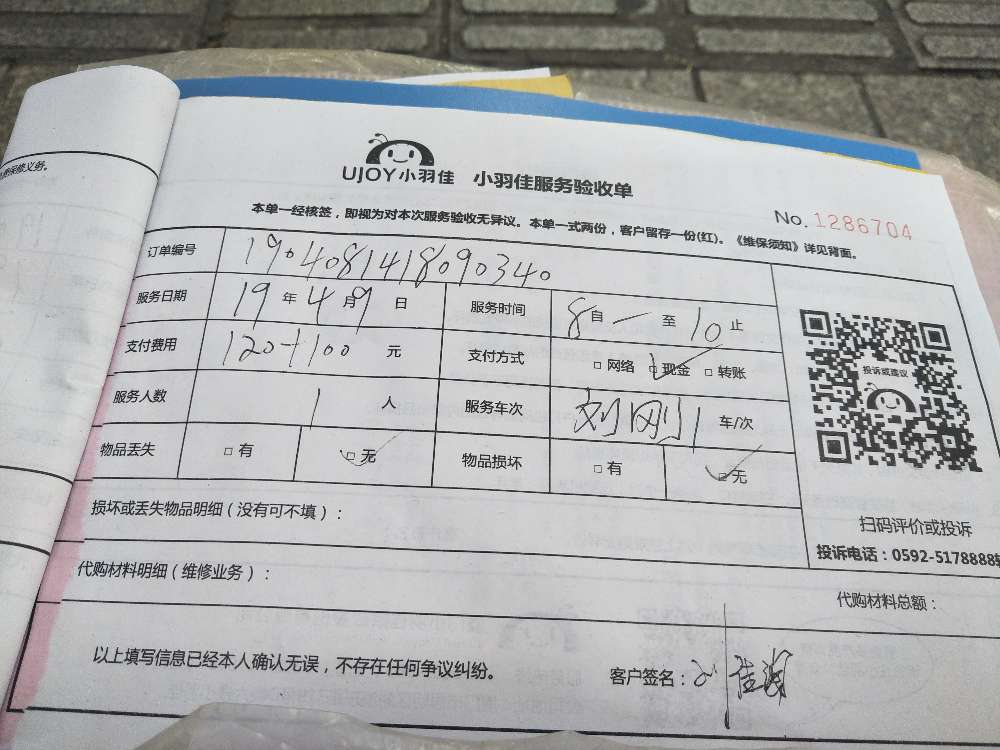 费保修义务。
UJOY小羽佳 小羽佳服务验收单
No. 1286704
本单一经核签，即视为对本次服务验收无异议。本单一式两份，客户留存一份(红)。《维保须知》详见背面。
订单编号 1904081418090340
服务日期 19 年 4 月 9 日 服务时间 8 自 一 至 10 止
支付费用 120+100 元 支付方式 □ 网络 □ 现金 □ 转账
投诉或建议
服务人数 1 人 服务车次 刘刚 1 车/次
物品丢失 □ 有 □ 无 物品损坏 □ 有 □ 无
损坏或丢失物品明细（没有可不填）：
扫码评价或投诉
投诉电话：0592-5178888转
代购材料明细（维修业务）：
代购材料总额：
以上填写信息已经本人确认无误，不存在任何争议纠纷。 客户签名：